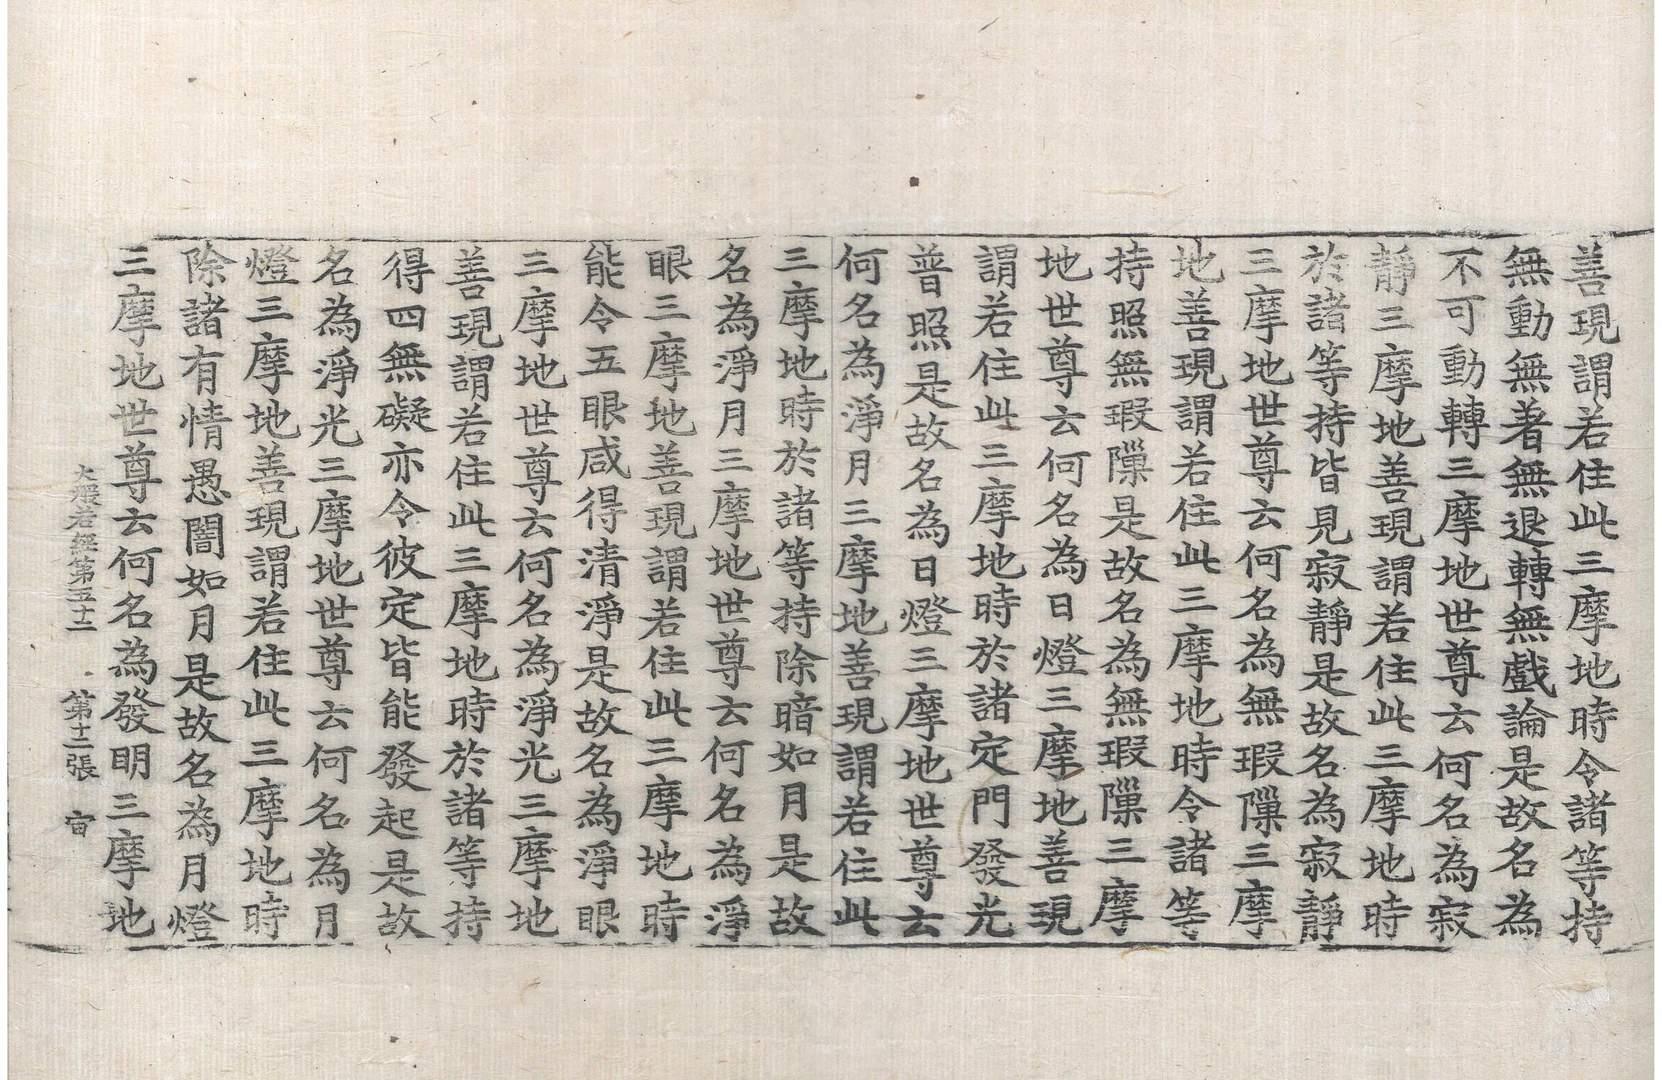 善現謂若住此三摩地時令諸等持
無動無著無退轉無戲論是故名為
不可動轉三摩地世尊云何名為寂
靜三摩地善現謂若住此三摩地時
於諸等持皆見寂靜是故名為寂靜
三摩地世尊云何名為無瑕隟三摩
地善現謂若住此三摩地時令諸等
持照無瑕隟是故名為無瑕隟三摩
地世尊云何名為日燈三摩地善現
謂若住此三摩地時於諸定門發光
普照是故名為日燈三摩地世尊云
何名為淨月三摩地善現謂若住此
三摩地時於諸等持除暗如月是故
名為淨月三摩地世尊云何名為淨
眼三摩地善現謂若住此三摩地時
能令五眼咸得清淨是故名為淨眼
三摩地世尊云何名為淨光三摩地
善現謂若住此三摩地時於諸等持
得四無礙亦令彼定皆能發起是故
名為淨光三摩地世尊云何名為月
燈三摩地善現謂若住此三摩地時
除諸有情愚闇如月是故名為月燈
三摩地世尊云何名為發明三摩地
大般若經第五十二　第十二張　宙